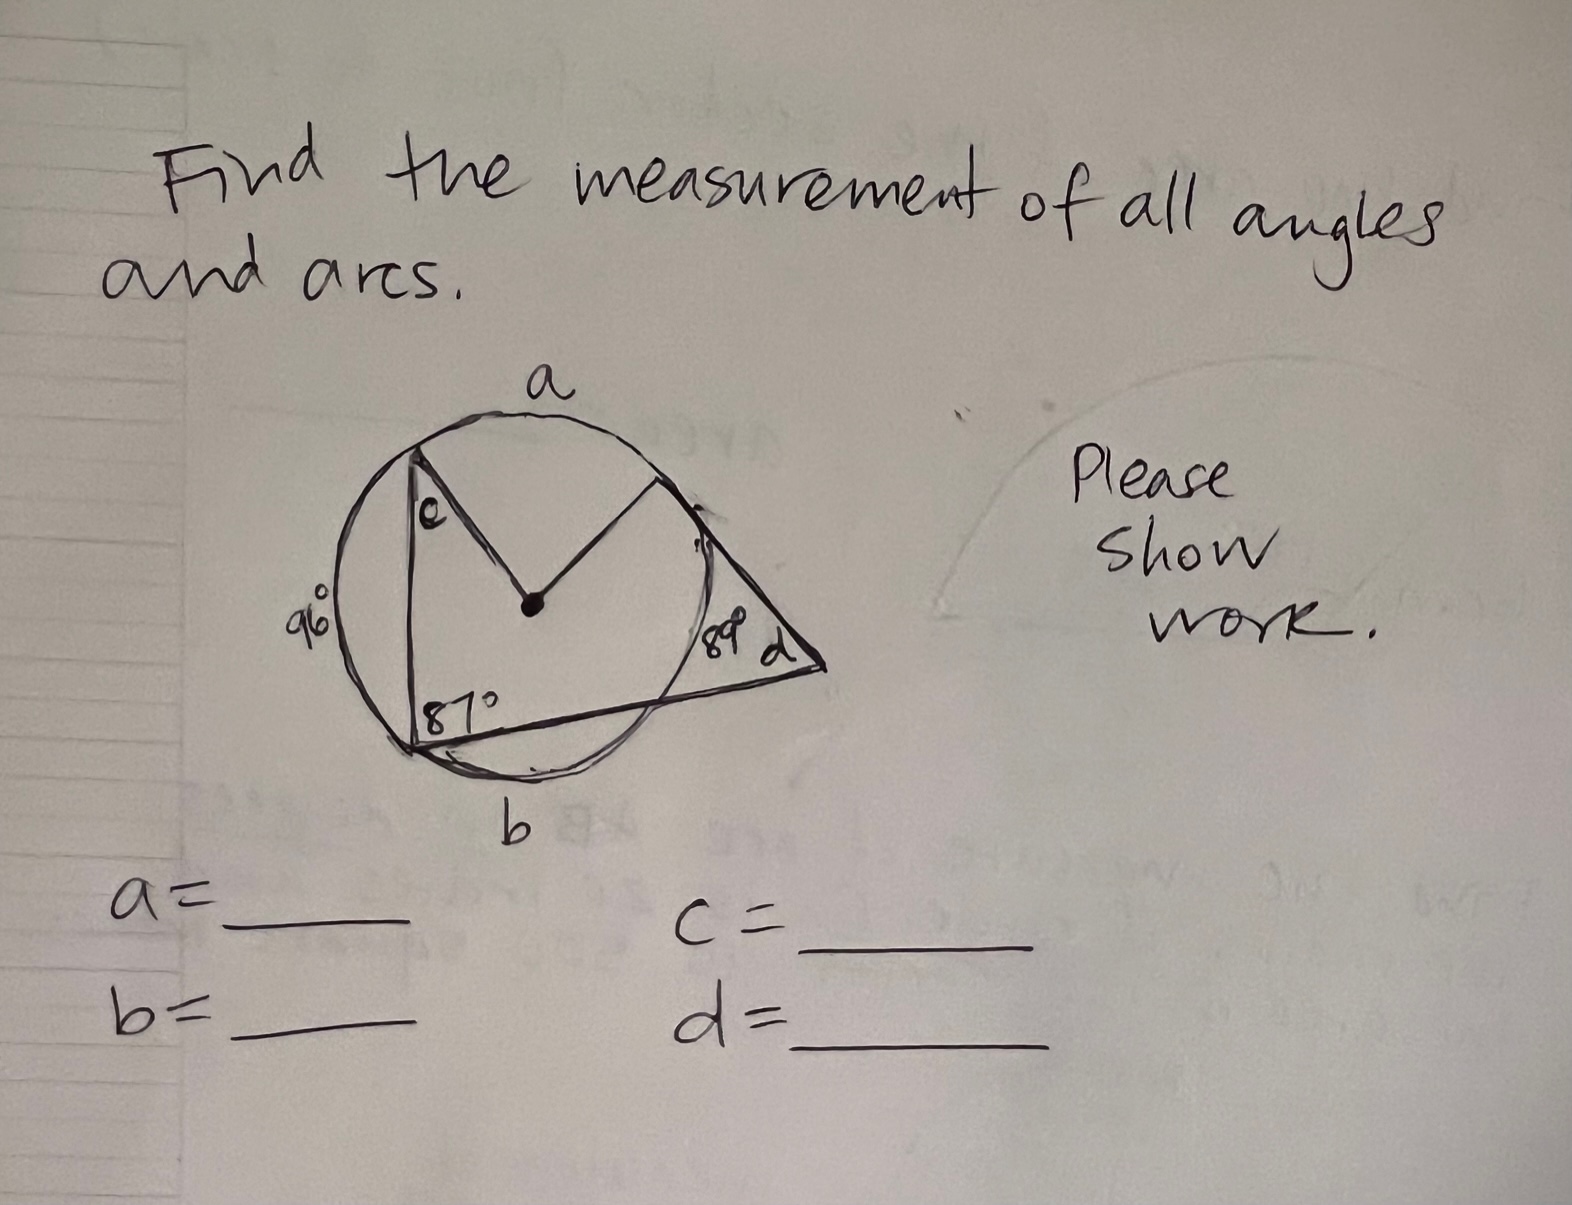 Find the measurement of all angles
and arcs.
a
c
96°
87°
89°
d
b
Please
show
work.
a=
c=
b=
d=